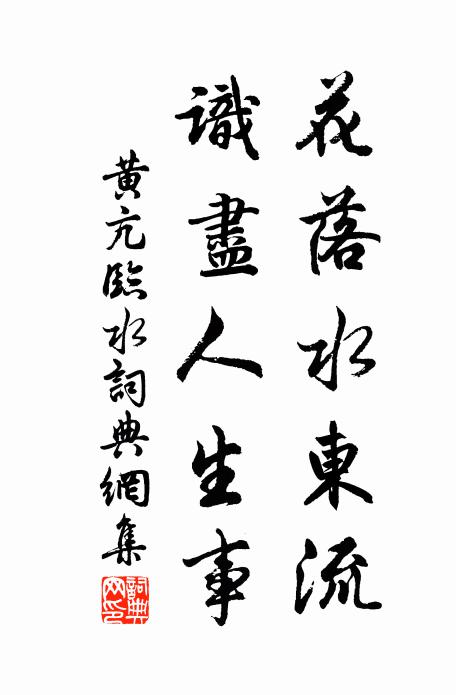 花落水東流
識盡人生事
黄亢臨水詞典網集
詞典網印